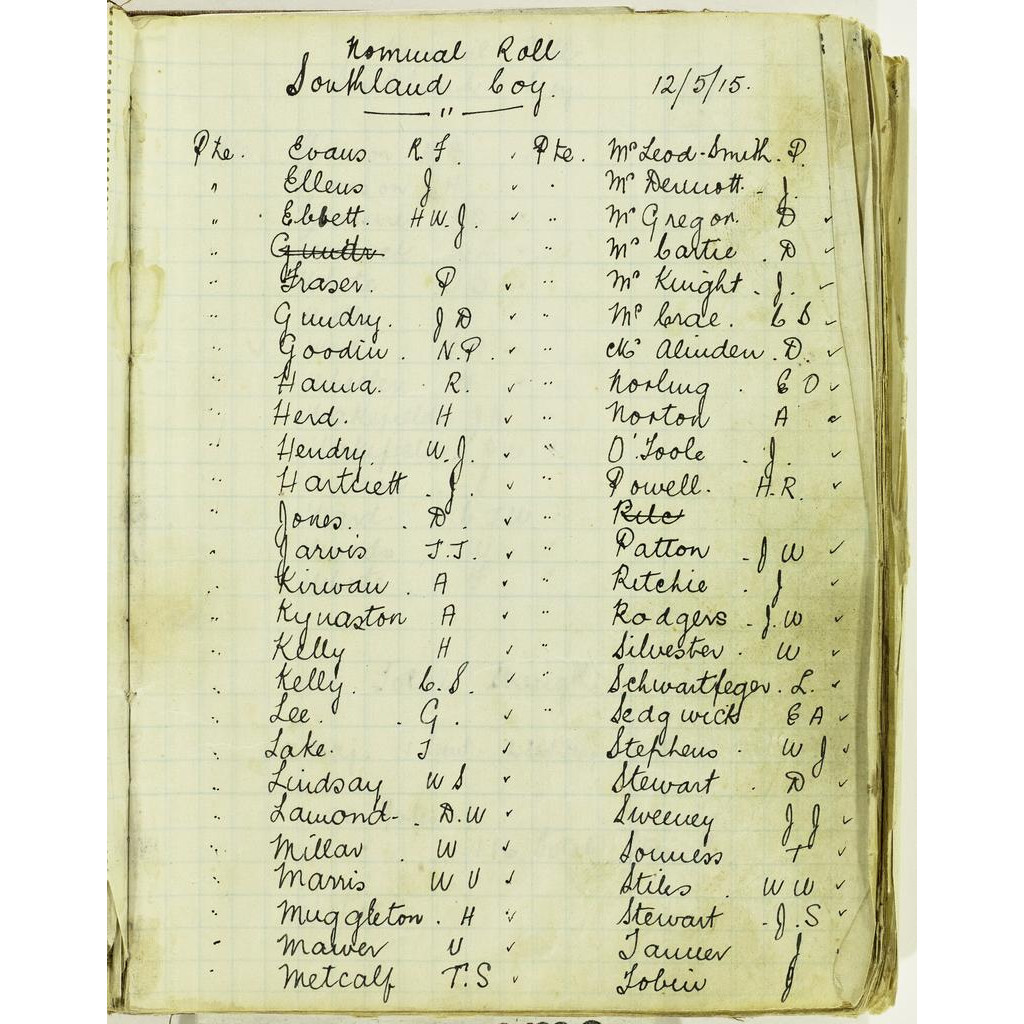 Nominal Roll
Southland Coy. 12/5/15.
"
Pte. Evans R F. ✓ Pte. McLeod-Smith. P.
" Ellens J ✓ " McDermott - J.
" Ebbett. H W. J. ✓ " McGregor. D ✓
" " McCartie . D ✓
" Fraser. P ✓ " McKnight - J. ✓
" Gundry. J D ✓ " McCrae. C S ✓
" Goodin . N. P. ✓ " Mc Alinden . D. ✓
" Hanna. R. ✓ " Norling . E O ✓
" Herd. H ✓ " Norton A ✓
" Hendry. W. J. ✓ " O'Toole - J. ✓
" Hartnett . J. ✓ " Powell. H. R. ✓
" Jones. . D. ✓ "
" Jarvis T. T. ✓ " Patton - J W ✓
" Kirwan . A ✓ " Ritchie . J ✓
" Kynaston A ✓ " Rodgers - J. W ✓
" Kelly H ✓ " Silvester . W ✓
" Kelly. C. S. ✓ " Schwartfeger. L. ✓
" Lee. . G . ✓ Sedgwick E A ✓
" Lake. T ✓ Stephens . W J ✓
" Lindsay W S ✓ Stewart . D ✓
" Lamond- . D. W ✓ Sweeney J J ✓
" Millar . W ✓ Sonness T ✓
" Marris W V ✓ Stiles . W W ✓
" Muggleton . H ✓ Stewart - J. S ✓
" Mawer V ✓ Tanner J
" Metcalf T. S ✓ Tobin J